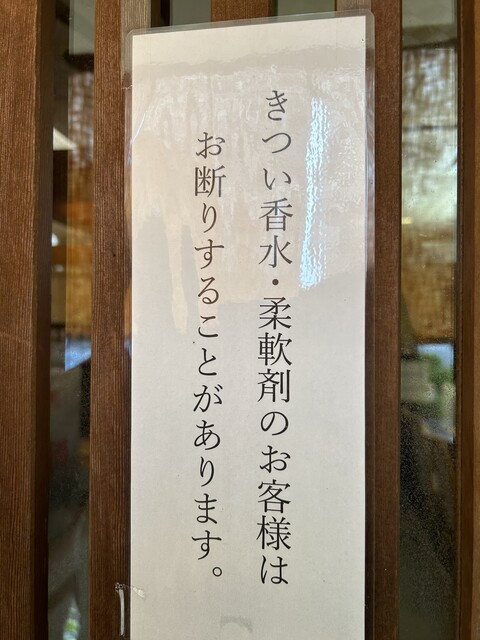 きつい香水・柔軟剤のお客様は
お断りすることがあります。